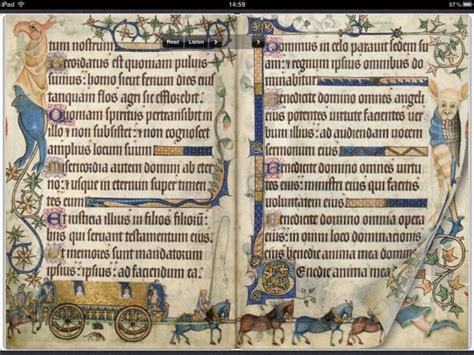 iPad 14:59 97%
Read Listen
tum nostrum
Recordatus est quoniam puluis
sumus: homo sicut fenum dies eius
tanquam flos agri sic efflorebit.
Quoniam spiritus pertransibit in
illo et non subsistet: et non cognoscet
amplius locum suum
Misericordia autem domini ab eter
no: et usque in eternum super timen
tes eum.
Et iusticia illius in filios filiorū:
hiis qui seruant testamentum eius.
Et memores sunt mandatorum
ipsius: ad faciendum ea.
Dominus in celo parauit sedem su
am: et regnum ipsius omnibus do
minabitur.
Benedicite domino omnes angeli
eius potentes uirtute: facientes uerbū
illius: ad audiendam uocem
sermonum eius.
Benedicite domino omnes uir
tutes eius: ministri eius qui facitis
uoluntatem eius.
Benedicite domino omnia opera
eius: in omni loco dominationis
eius benedic anima mea
Benedic anima mea